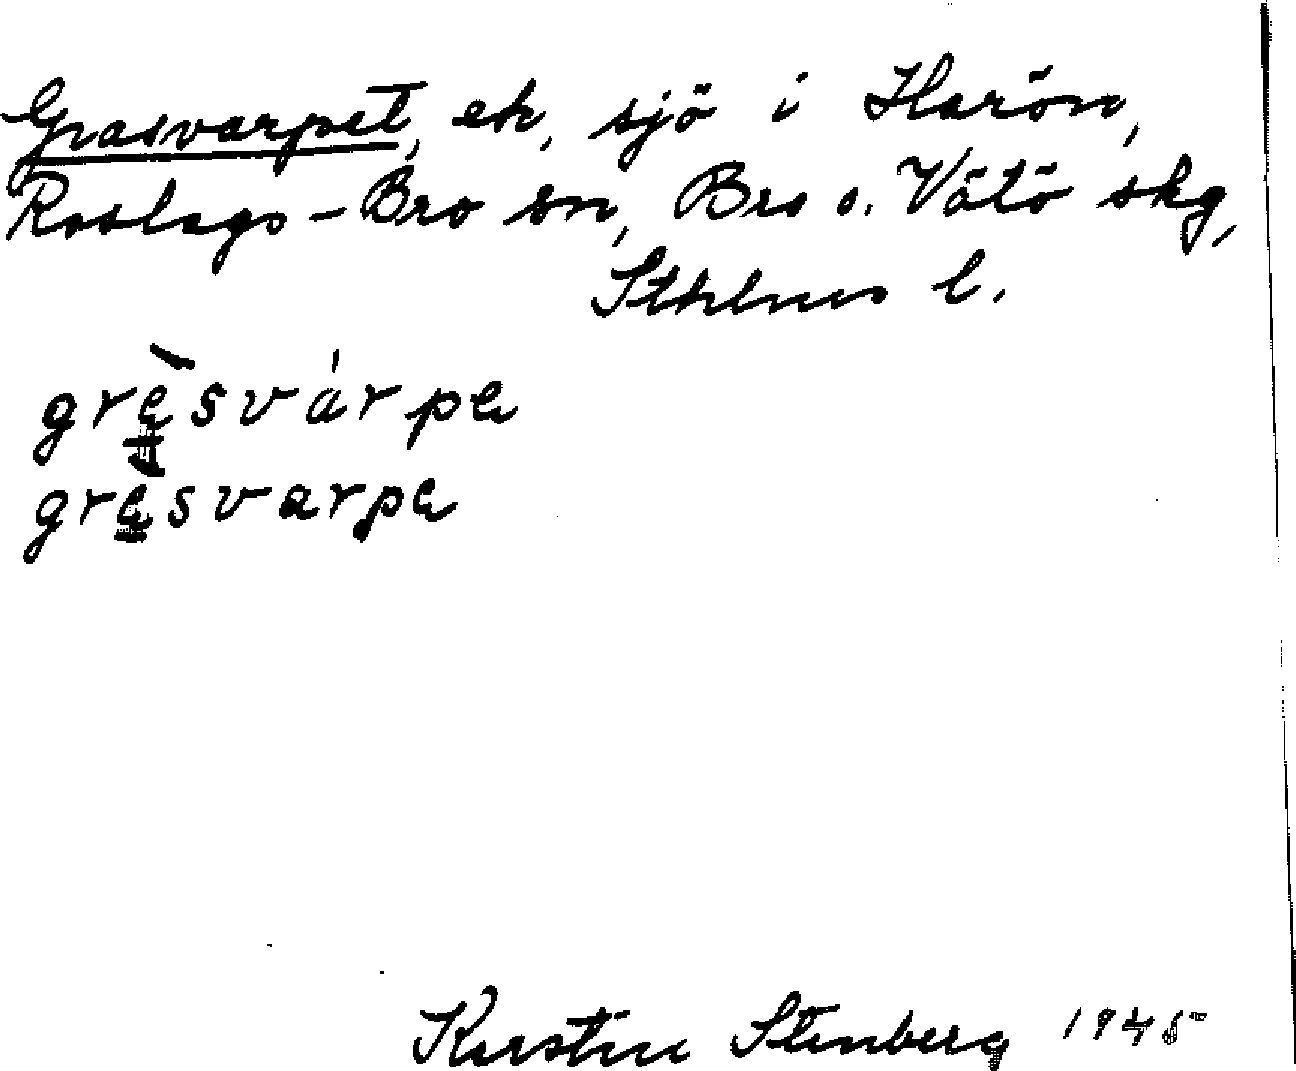 Grasvarpet, ek, sjö i Harön,
Roslags-Bro sn, Bro o. Vätö skg,
Sthlms l.
grę̀svárpę
gręsvarpę
Kerstin Stenberg 1945